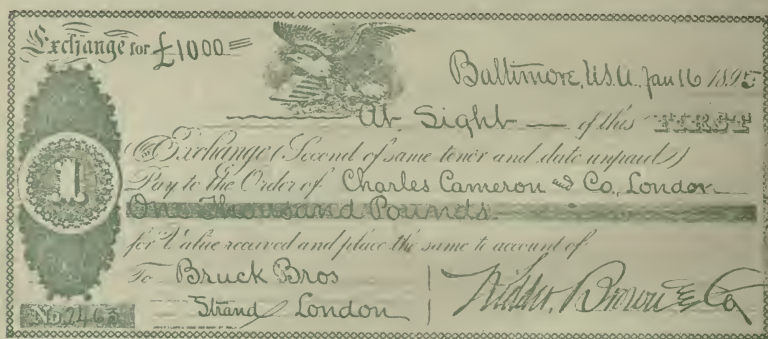 Exchange for £1000=
Baltimore, U.S.A. Jan 16 1895
At Sight — of this FIRST
of Exchange (Second of same tenor and date unpaid)
Pay to the Order of Charles Cameron and Co., London
One Thousand Pounds
for Value received and place the same to account of
1
To Bruck Bros
Strand London
Brown & Co
No 2463